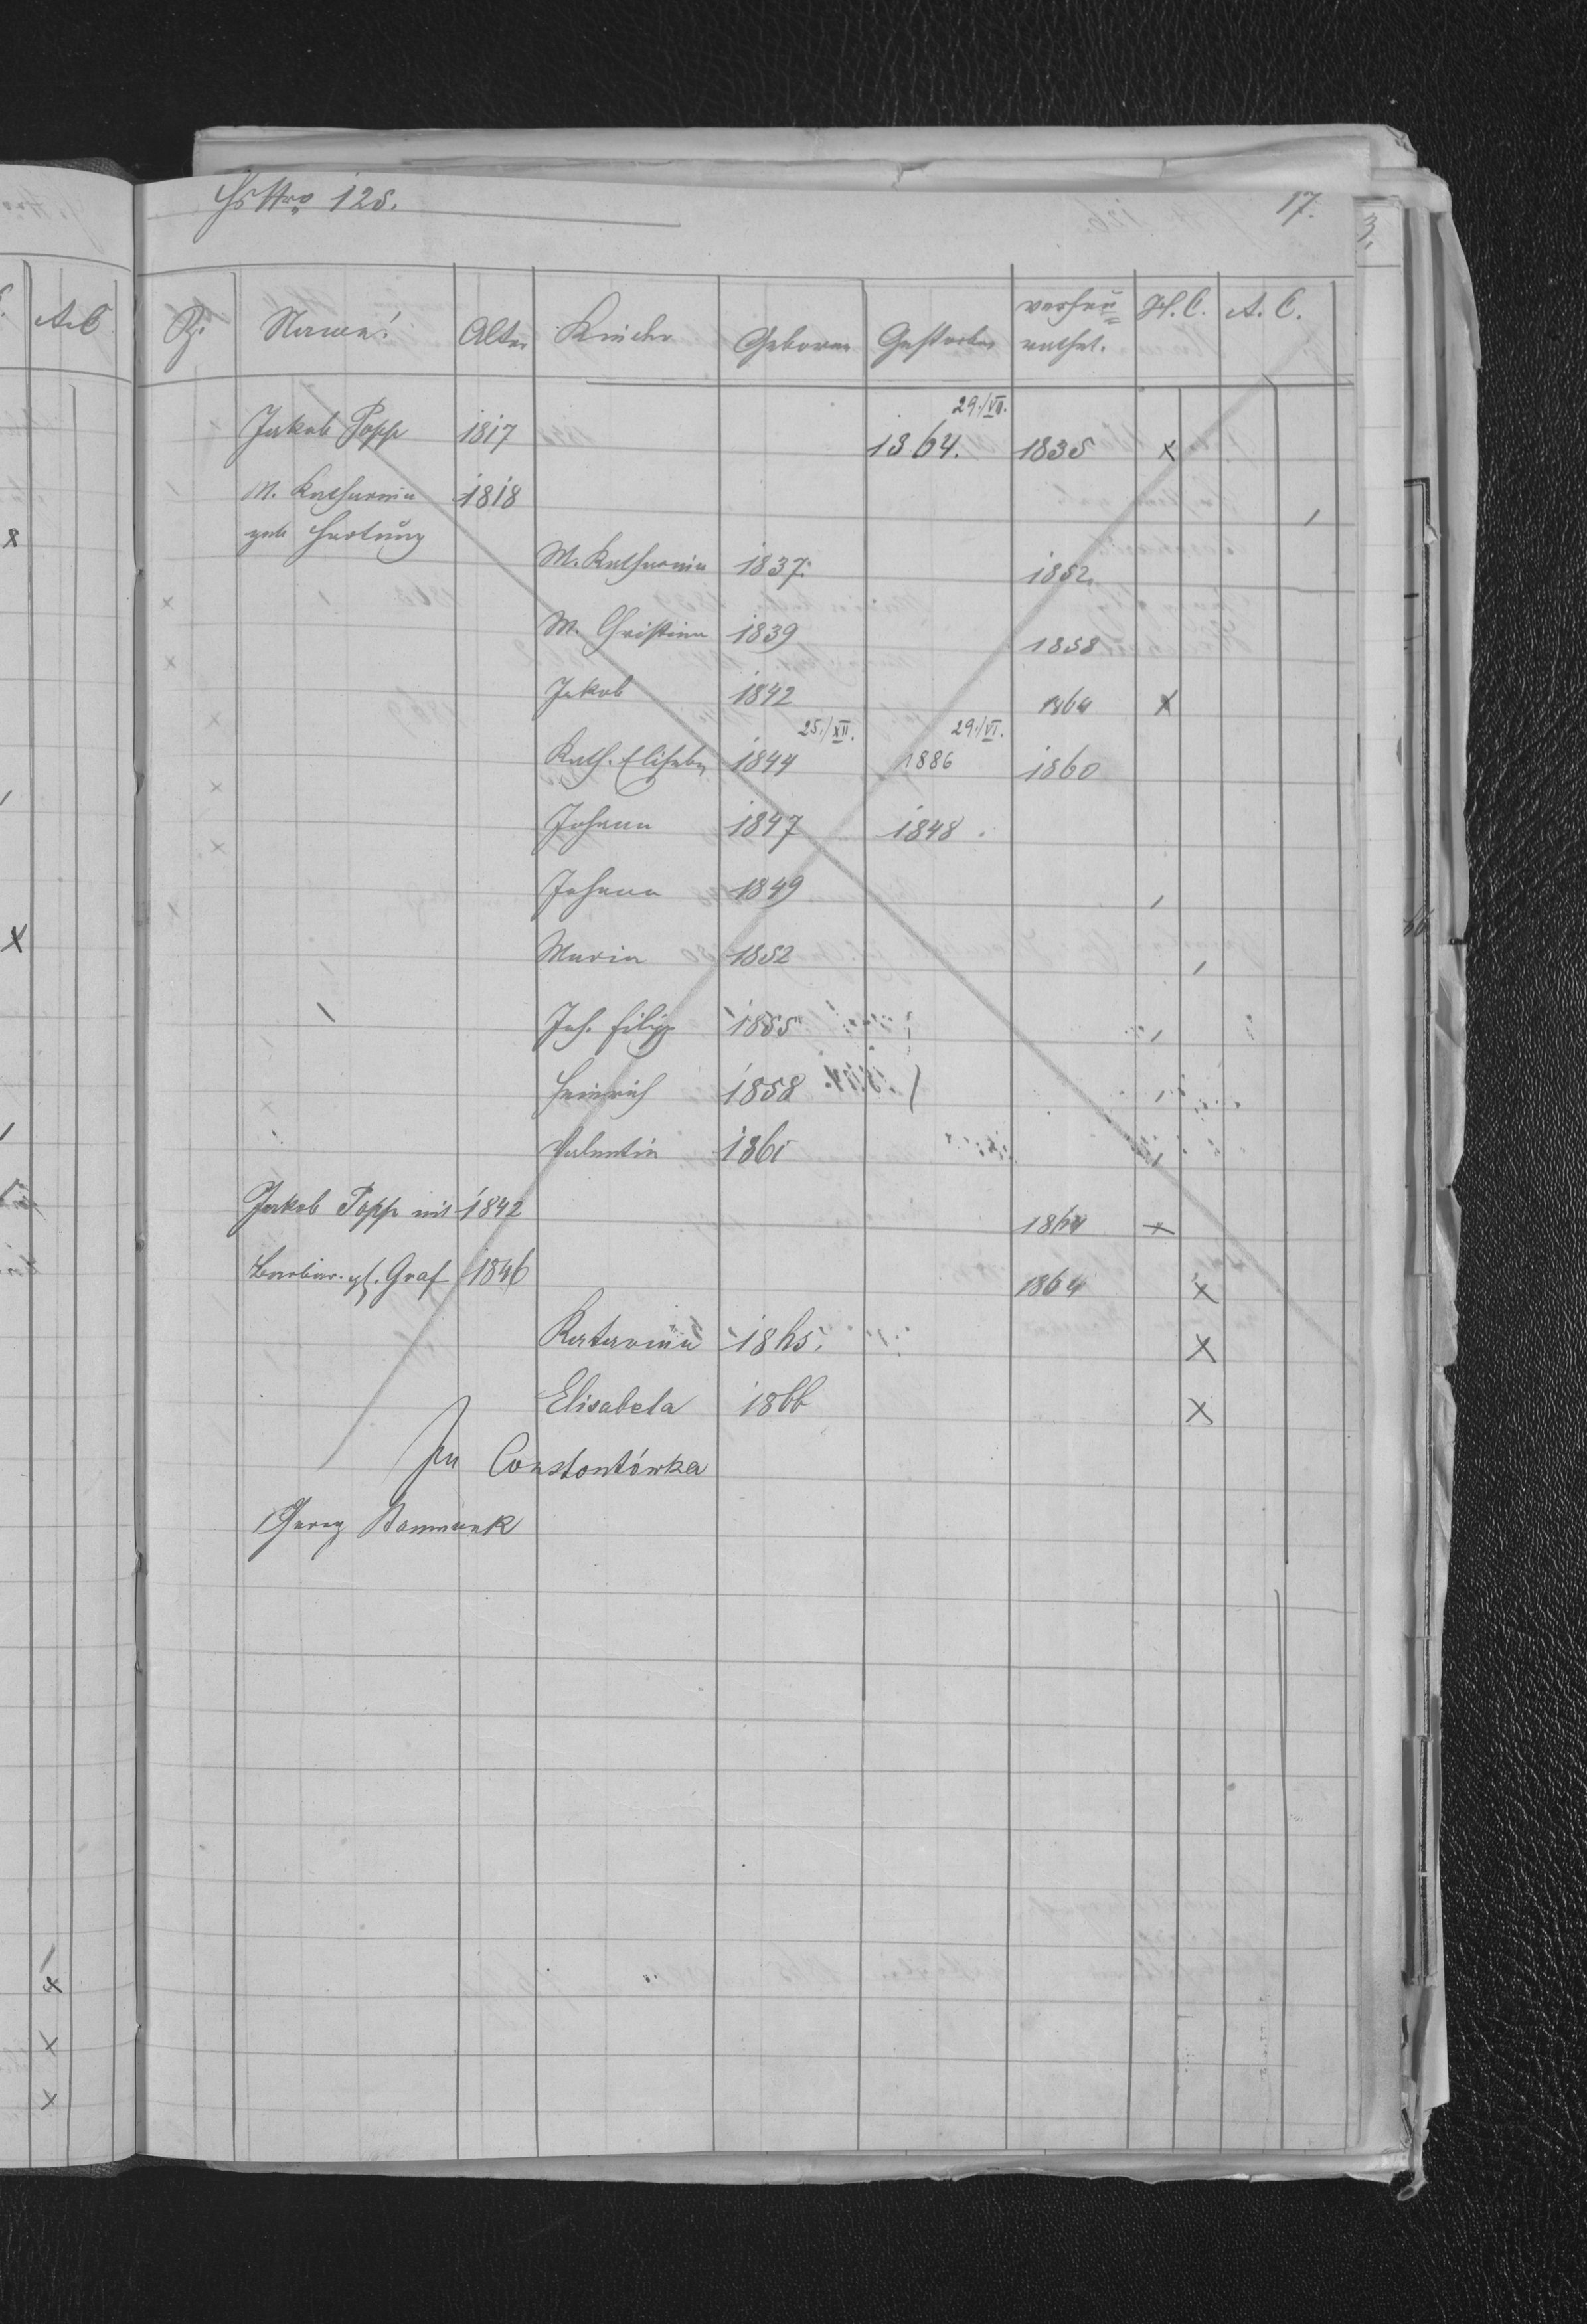 Hs Nro 125.
17.
Z. Namen: Alter Kinder Geboren Gestorben verheü= rathet. H. C. A. C.
29./VII.
Jakob Popp 1817 1864. 1835 x
M. Katharina 1818
geb Hartung
M. Katharina 1837. 1852.
M. Christina 1839 1858
Jakob 1842 1864 x
25./XII. 29./VI.
Kath. Elisabe 1844 1886 1860
Johann 1847 1848.
Johann 1849
Maria 1852
Joh. Filip 1855
Heinrich 1858
Valentin 1861
Jakob Popp mit 1842 1864 x
Barbar. gb. Graf 1846 1864 x
Katarina 1865. x
Elisabeta 1866 x
in Constontówka
Georg